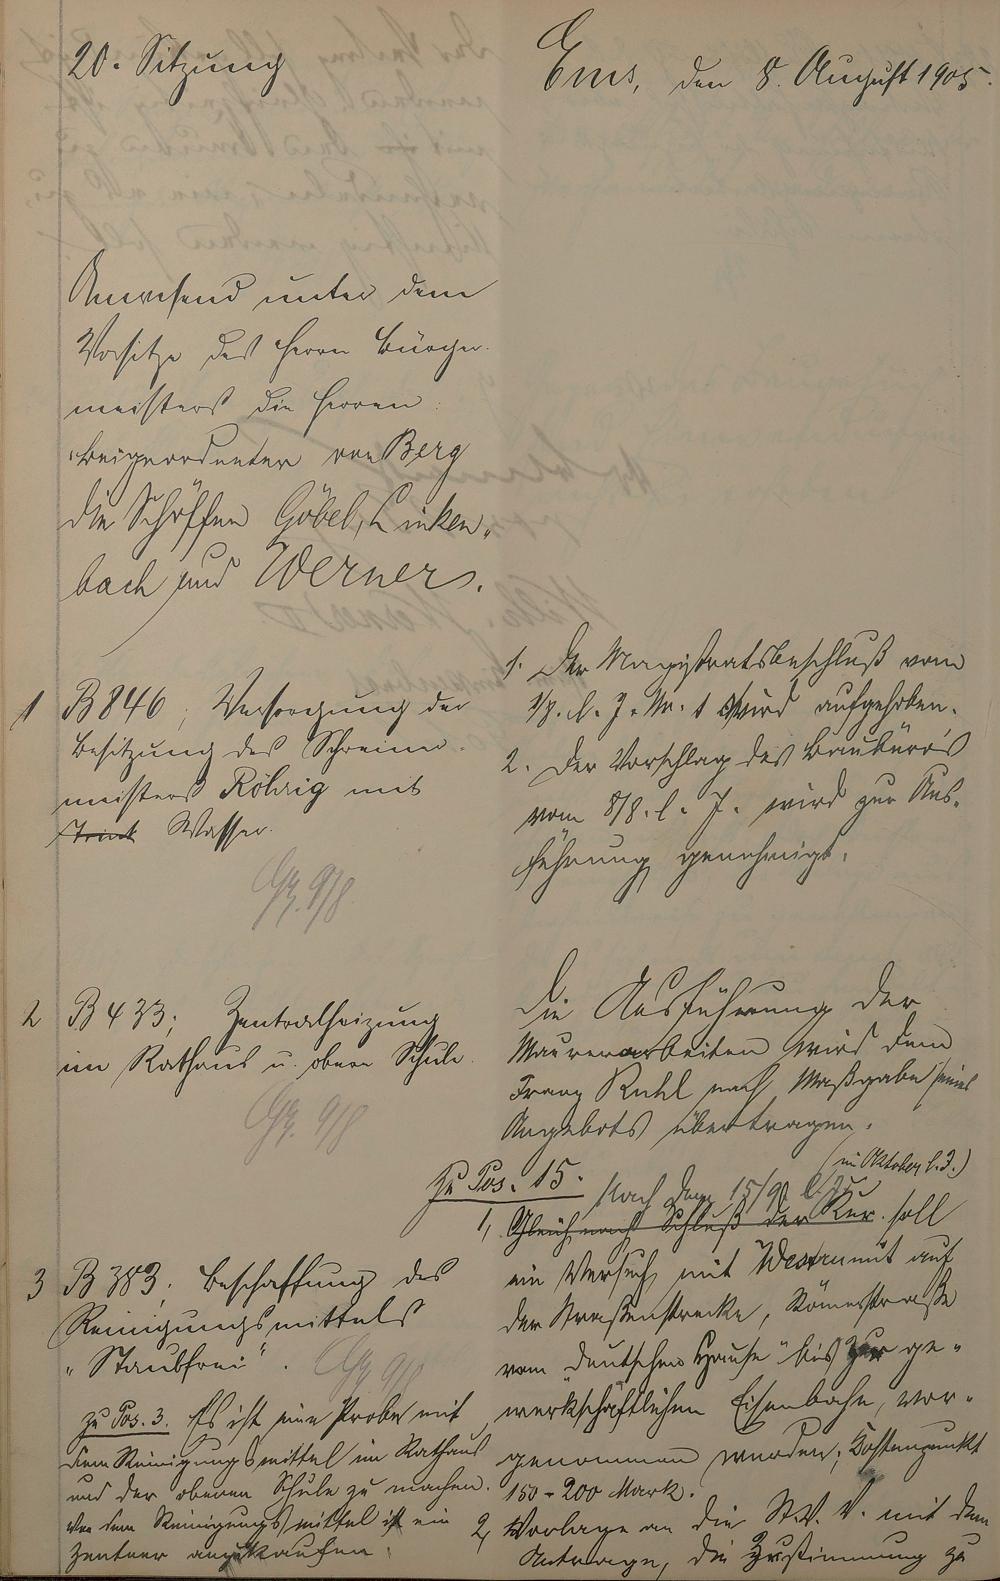 20. Sitzung
Ems, den 8. August 1905.
Anwesend unter dem
Vorsitze des Herrn Bürger-
meisters die Herren:
Beigeordneter von Berg
die Schöffen Göbel, Linken-
bach und Werners.
1 B 846; Versorgung der
Besitzung des Schreiner-
meisters Röhrig mit
Trink Wasser.
Gz. 9/8.
1. Der Magistratsbeschluß vom
1/8. l. J. Nr. 1 wird aufgehoben.
2. Der Vorschlag des Baubüro's
vom 8/8. l. J. wird zur Aus-
führung genehmigt.
2 B 433; Zentralheizung
im Rathaus u. obere Schule.
Gz. 9/8
Die Ausführung der
Maurerarbeiten wird dem
Franz Ruhl nach Maßgabe seines
Angebots übertragen.
3 B 383; Beschaffung des
Reinigungsmittels
"Staubfrei".
Gz. 9/8
zu Pos. 3. Es ist eine Probe mit
dem Reinigungsmittel im Rathaus
und der oberen Schule zu machen.
Von dem Reinigungsmittel ist ein
Zentner anzukaufen.
Zu Pos. 15.
(im Oktober l. J.)
Nach dem 15/9. l. J.
1, Gleich nach Schluß der Kur soll
ein Versuch mit Westrumit auf
der Straßenstrecke, Römerstraße
vom "Deutschen Hause" bis zur ge-
werkschaftlichen Eisenbahn, vor-
genommen werden; Kostenpunkt
150-200 Mark.
2, Vorlage an die St. V. V. mit dem
Antrage, die Zustimmung zu